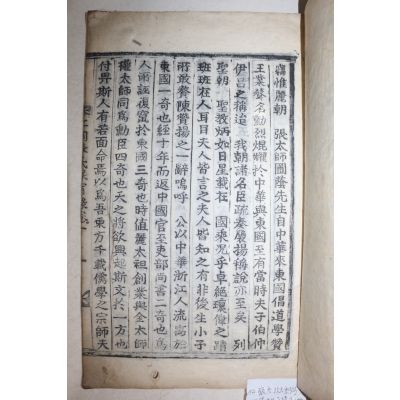 竊惟麗朝　張太師圃蔭先生自中華來東國倡道學贊
王業聲名勳烈焜耀於中華與東國至有當時夫子伯仲
伊呂之稱迨　我朝諸名臣疏奏褒揚稱說亦至矣　列
聖朝　聖教炳如日星載在　國乘况乎卓絕瓌偉之蹟
班班在人耳目夫人皆言之夫人皆知之有非後生小子
所敢齊陳贊揚之一辭嗚呼　公以中華浙江人流寓於
東國一奇也經十年而返中國官至吏部尚書二奇也爲
人所誣復竄於東國三奇也時値麗太祖創業與金太師
權太師同爲勳臣四奇也天之將欲興起斯文於一方也
付畀斯人有若面命焉以爲吾東方千載儒學之宗師天